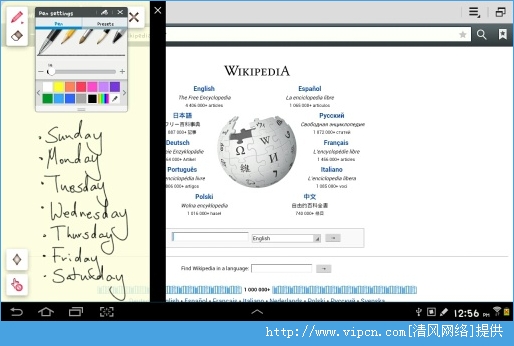 Pen settings
Pen
Presets
Sunday
Monday
Tuesday
Wednesday
Thursday
Friday
Saturday
WIKIPEDIA
English
The Free Encyclopedia
4 406 000+ articles
Español
La enciclopedia libre
1 066 000+ artículos
日本語
フリー百科事典
887 000+ 記事
Русский
Свободная энциклопедия
1 072 000+ статей
Deutsch
eie Enzyklopädie
Artikel
Français
L'encyclopédie libre
1 456 000+ articles
Português
iclopédia livre
artigos
Italiano
L'enciclopedia libera
1 085 000+ voci
Polski
Wolna encyklopedia
1 016 000+ haseł
中文
自由的百科全書
740 000+ 條目
English
Find Wikipedia in a language:
1 000 000+
12:56 PM
http://www.vipcn.com[清风网络]提供